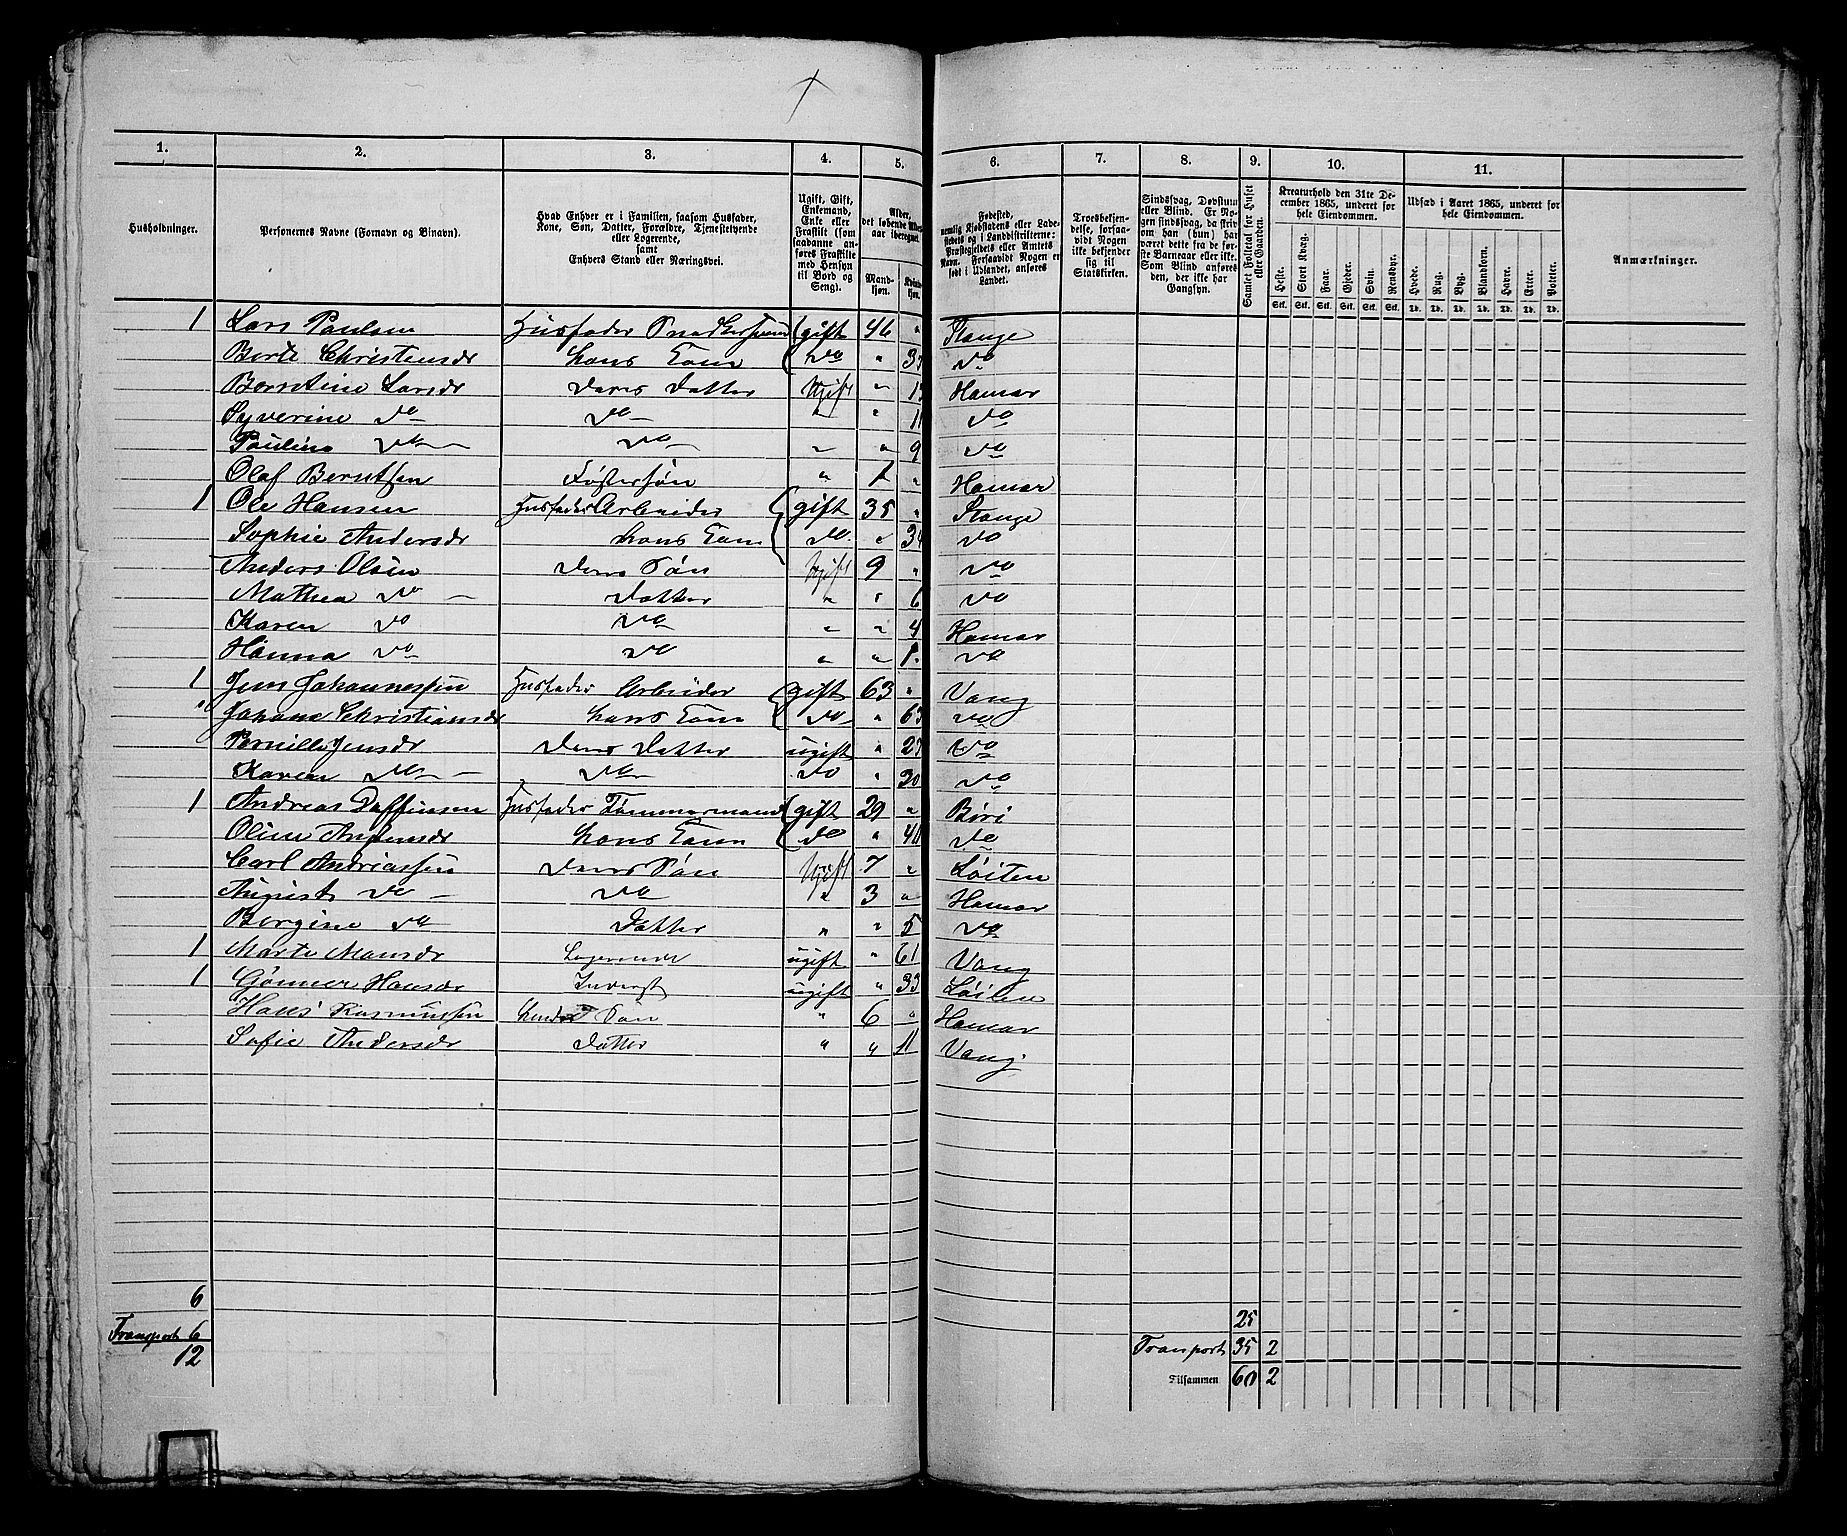 1. 2. 3. 4. 5. 6. 7. 8. 9. 10. 11.
Husholdninger.
Personernes Navne (Fornavn og Binavn).
Hvad Enhver er i Familien, saasom Husfader,
Kone, Søn, Datter, Forældre, Tjenestetyende
eller Logerende,
samt
Enhvers Stand eller Næringsvei.
Ugift, Gift,
Enkemand,
Enke eller
Fraskilt (som
saadanne an-
føres Fraskilte
med Hensyn
til Bord og
Seng).
Alder,
det løbende
aar iberegnet.
Mand-
kjøn.
Kvinde-
kjøn.
Fødested,
nemlig Kjøbstadens eller Lade-
stedets og i Landdistrikterne:
Præstegjeldets eller Amtets
Navn. Forsaavidt Nogen er
født i Udlandet, anføres
Landet.
Troesbekjen-
delse, forsaa-
vidt Nogen
ikke bekjender
sig til
Statskirken.
Sindssvag, Døvstum
eller Blind. Er No-
gen sindssvag, da skriv
om han (hun) har
været dette fra de før-
ste Barneaar eller ikke.
Som Blind anføres
den, der ikke har
Gangsyn.
Samlet Folketal for Huset
eller Gaarden.
Kreaturhold den 31te De-
cember 1865, underet for
hele Eiendommen.
Heste. Stort Kvæg. Faar. Gjeder. Sviin. Rensdyr.
Stk. Stk. Stk. Stk. Stk. Stk.
Udsæd i Aaret 1865, underet for
hele Eiendommen.
Hvede. Rug. Byg. Blandkorn. Havre. Erter. Poteter.
Td. Td. Td. Td. Td. Td. Td.
Anmærkninger.
1 Lars Paulsen Husfader Snedkersvend gift 46 " Stange
Berte Christensdr hans Kone do " do
Berntine Larsdr deres Datter Ugift " Hamar
Syverine do do " " 11 do
Pauline do do " " 9 do
Olaf Berntsen Fostersøn " 1 " Hamar
1 Ole Hansen Husfader Arbeider gift 35 " Stange
Sophie Andersdr hans Kone do " 34 do
Anders Olsen deres Søn Ugift 9 " do
Mathea do Datter " " 6 do
Karen do do " " 4 Hamar
Hanna do do " " 1 do
1 Jens Johannessen Husfader Arbeider gift 63 " Vang
Johane Christiansdr hans Kone do " 63 do
Pernille Jensdr deres Datter ugift " 27 do
Karen do do do " 20 do
1 Andreas Husfader Tømmermand gift 29 " Biri
Oline Andersdr hans Kone do " do
Carl Andreassen deres Søn Ugift 7 " Løiten
August do do " 3 " Hamar
Bergine do Datter " " 5 do
1 Marte Mansdr Logerende ugift " 61 Vang
1 Gønner Hansdr Inderst ugift " 33 Løiten
Hans Rasmussen hendes Søn " 6 " Hamar
Sofie Andersdr Datter " " 11 Vang
6
Transport 6
12
25
Transport 35 2
Tilsammen 60 2